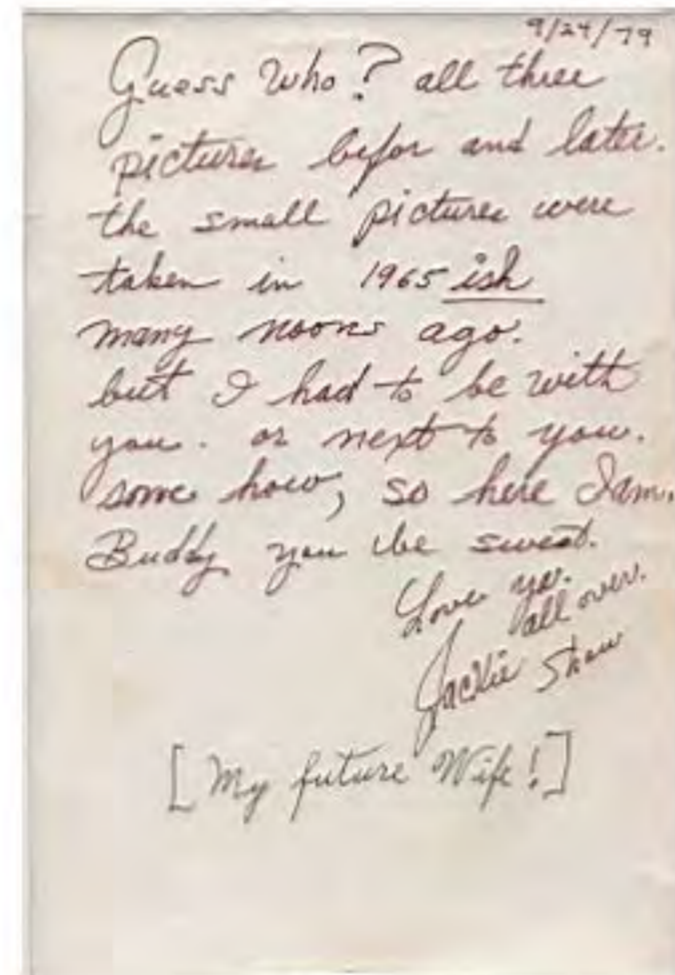 9/24/79
Guess Who? all three
pictures befor and later.
the small pictures were
taken in 1965 ish
many noons ago.
but I had to be with
you. or next to you.
some how, so here I am.
Buddy you the sweet.
Love ya.
all over.
Jackie Shaw
[My future Wife!]